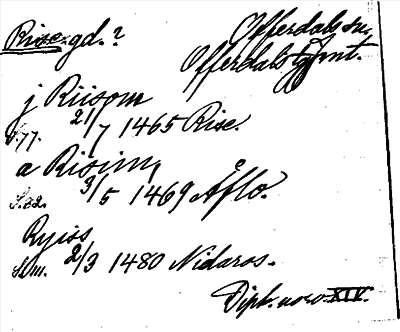 Rise. gd.? Offerdals sn,
Offerdals tg, Jmt.
j Riisom
S. 77. 21/7 1465 Rise.
a Risim,
S. 82. 3/5 1469 Åflo.
Ryiss
2/3 1480 Nidaros.
Dipl. norv. XIV.